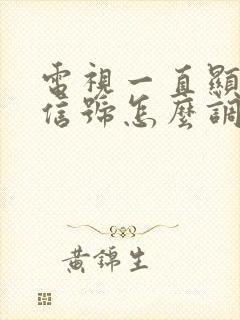 電視一直顯
信號怎麼調
黃錦生